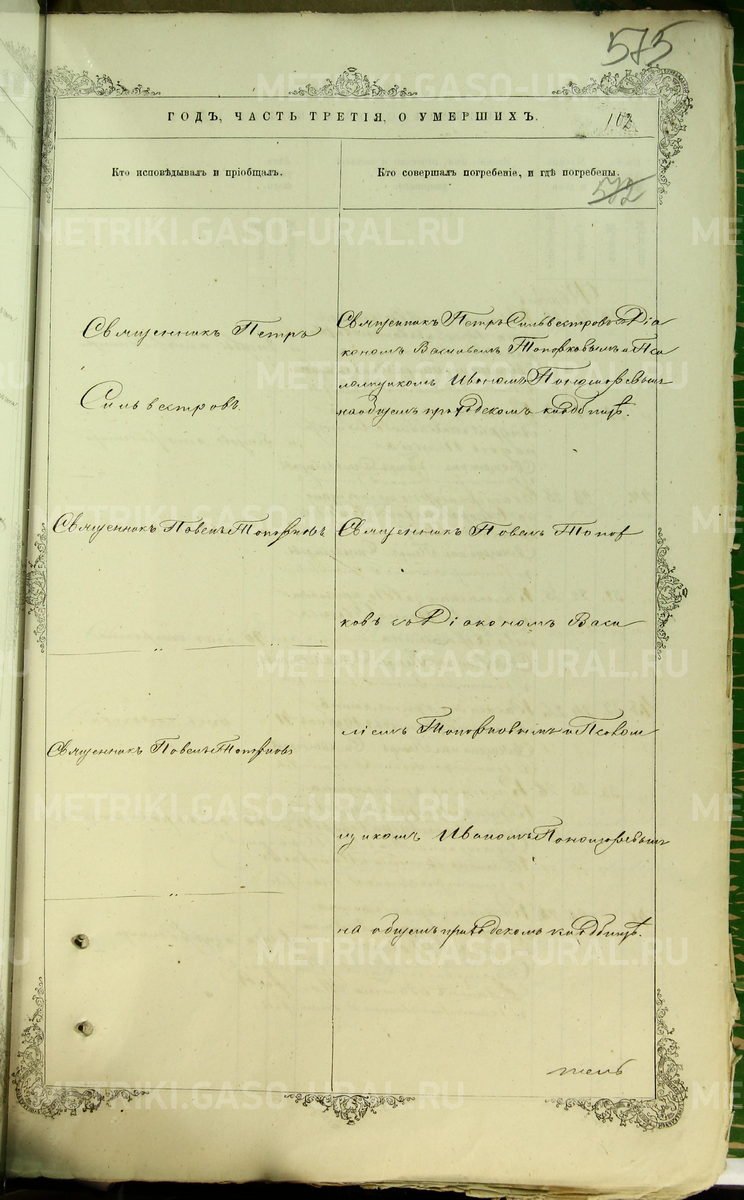 575
ГОДЪ, ЧАСТЬ ТРЕТІЯ, О УМЕРШИХЪ.
102
Кто исповѣдывалъ и пріобщалъ.
Кто совершалъ погребеніе, и гдѣ погребены.
572
Священникъ Петръ
Сильвестровъ.
Священникъ Петръ Сильвестровъ съ Діа
кономъ Василіемъ Топорковымъ и Пса
ломщикомъ Иваномъ Пономаревымъ
на общемъ приходскомъ кладбищѣ.
Священникъ Павелъ Топорковъ
Священникъ Павелъ Топор
ковъ съ Діакономъ Васи
Священникъ Павелъ Топорковъ
ліемъ Топорковымъ и Псалом
щикомъ Иваномъ Пономаревымъ
на общемъ приходскомъ кладбищѣ.
METRIKI.GASO-URAL.RU